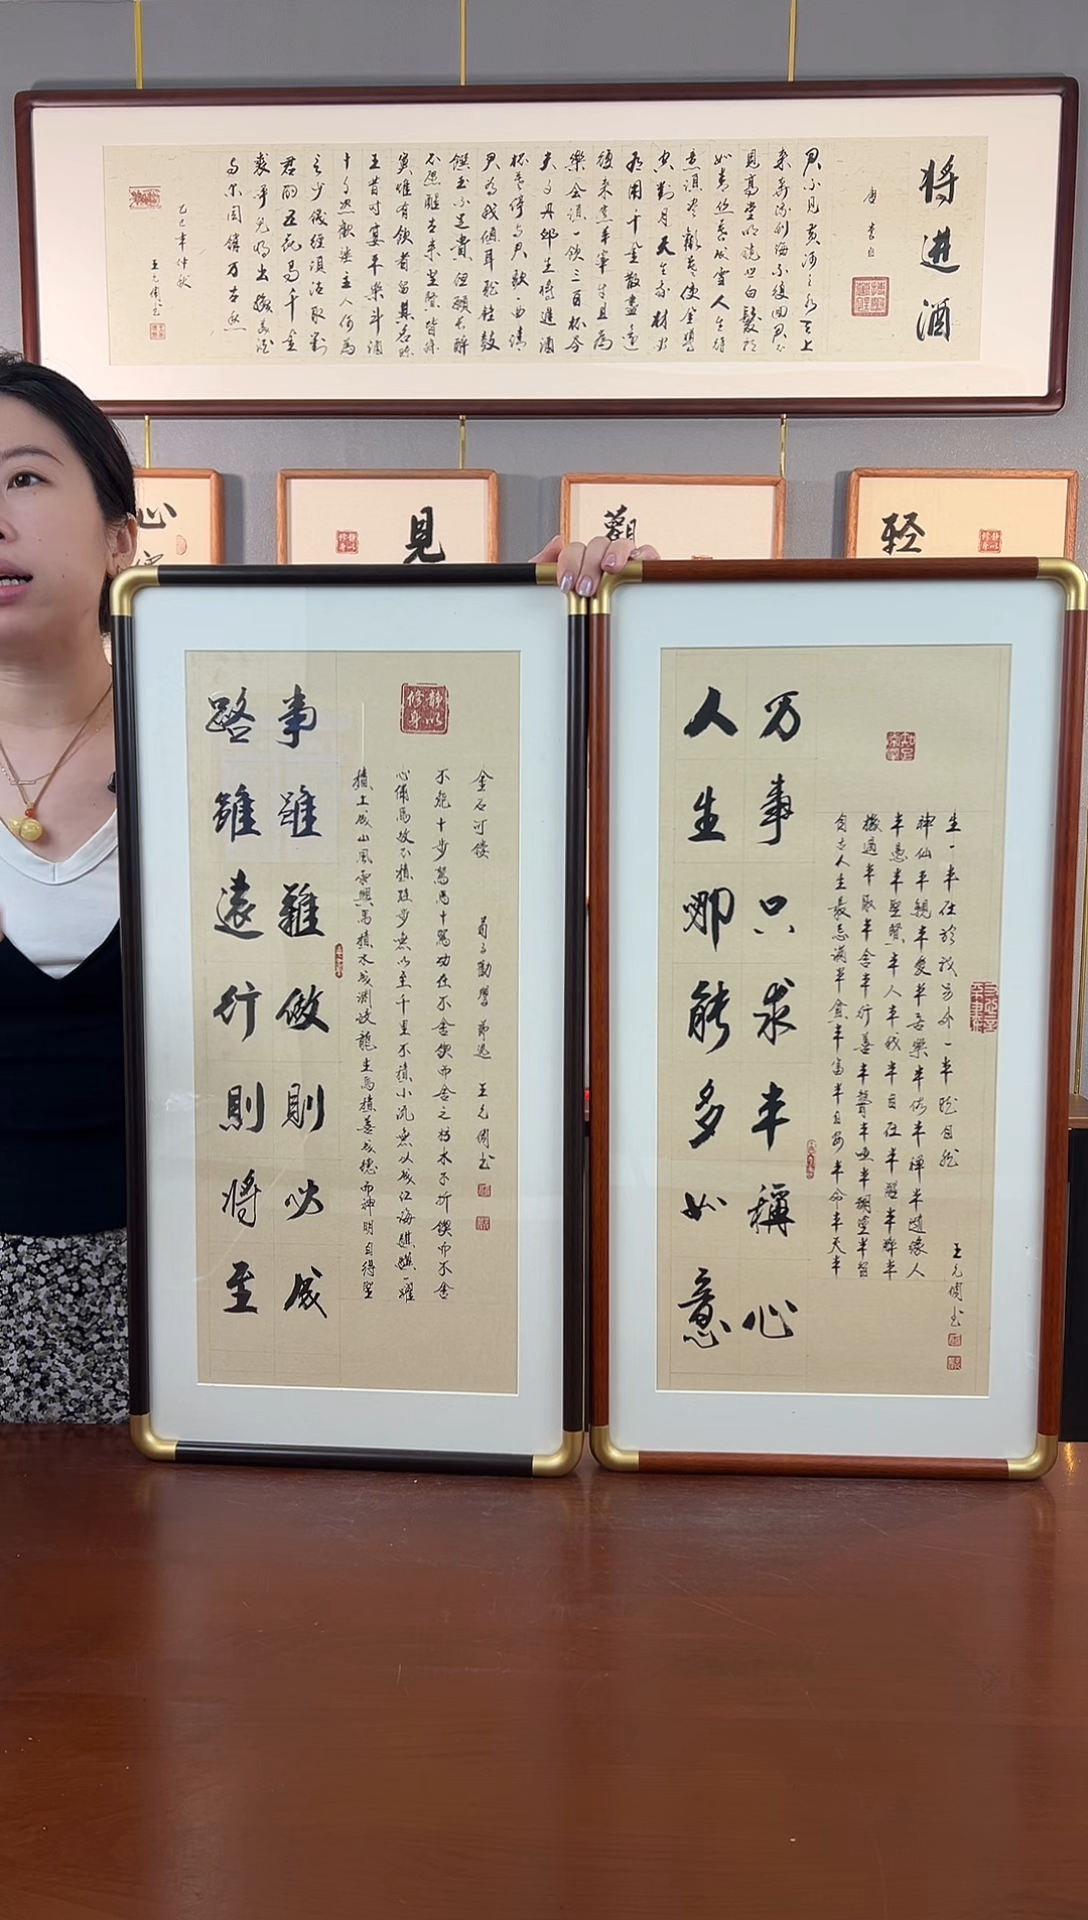 将進酒
唐 李白
君不見黃河之水天上
来奔流到海不復回君不
見高堂明鏡悲白髮朝
如青丝暮成雪人生得
意須尽歡莫使金樽
空對月天生我材必
有用千金散盡還
復来烹羊宰牛且為
樂会須一飲三百杯岑
夫子丹邱生將進酒
杯莫停与君歌一曲請
君為我傾耳聽鐘鼓
饌玉不足貴但願長醉
不愿醒古来聖賢皆寂
寞惟有飲者留其名陳
王昔時宴平樂斗酒
十千恣歡謔主人何為
言少錢徑須沽取對
君酌五花馬千金
裘呼兒將出換美酒
与尔同銷万古愁
乙巳年仲秋
心
見
觀
轻
路雖遠行則將至
事雖難做則必成
静以修身
積土成山風雨興焉積水成淵蛟龍生焉積善成德而神明自得聖
心備焉故不積跬步無以至千里不積小流無以成江海騏驥一躍
不能十步駑馬十駕功在不舍鍥而舍之朽木不折鍥而不舍
金石可镂 荀子勸學節選 王元书
人生哪能多如意
万事只求半稱心
自古人生最忌滿半貧半富半自安半命半天半
機遇半取半舍半行善半聾半啞半糊塗半智
半愚半聖賢半人半我半自在半醒半醉半
神仙半親半愛半苦樂半俗半禪半隨緣人
生一半在於我另外一半聽自然 王元书